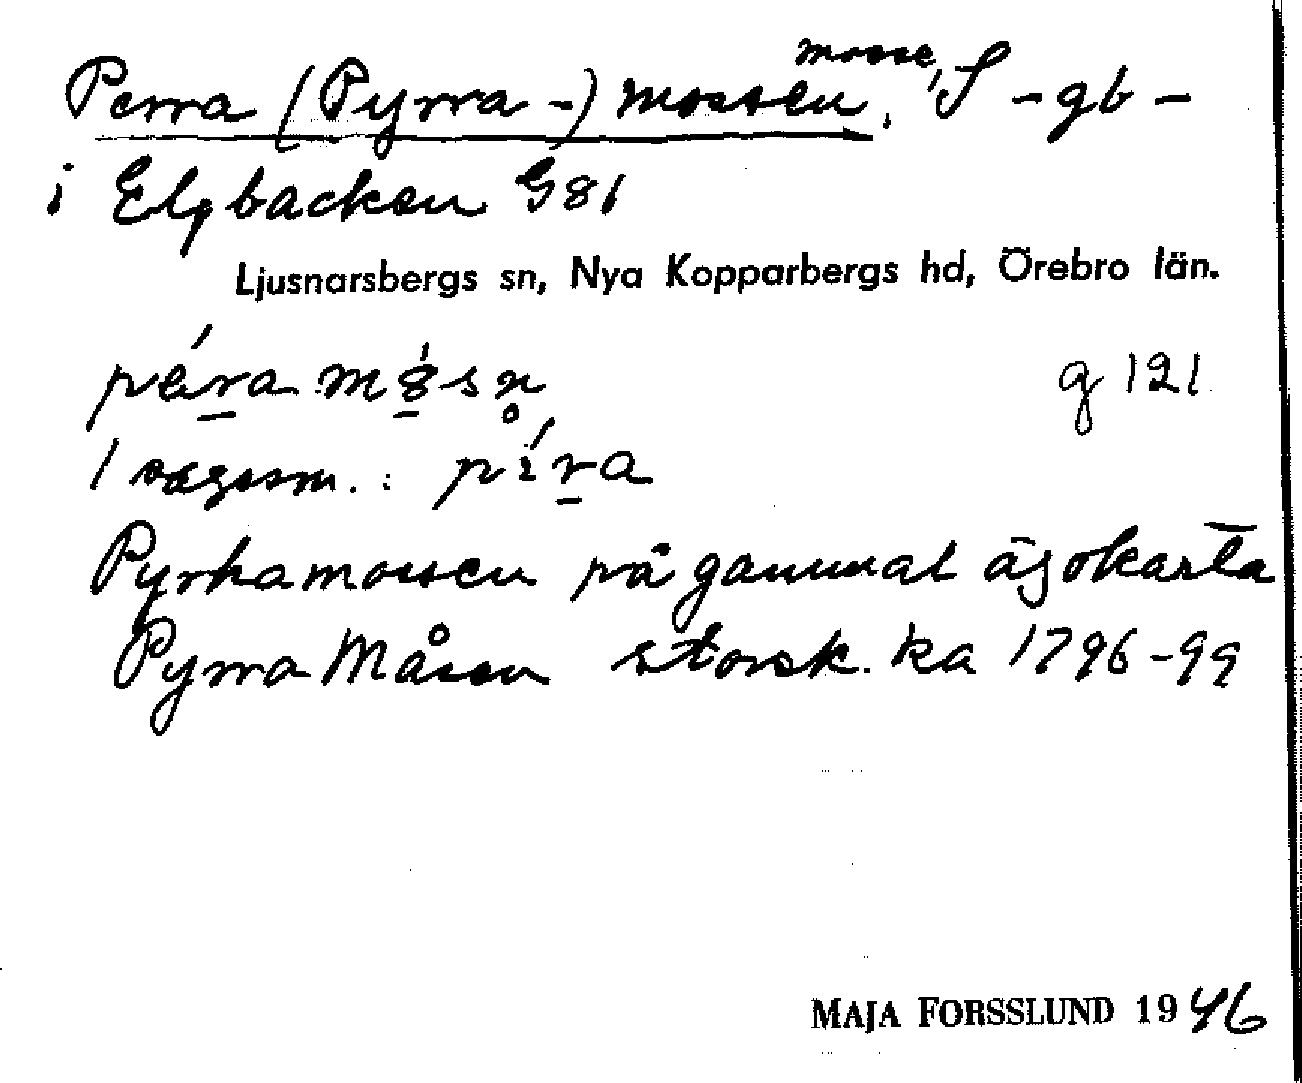 Perra (Pyrra-) mossen, mosse, S -gb-
i Elgbacken G81
Ljusnarsbergs sn, Nya Kopparbergs hd, Örebro län.
péra mósn g 121
1 sagesm. : píra
Pyrhamossen på gammal ägokarta
Pyrra Måsen storsk. ka 1796-99
MAJA FORSSLUND 1946